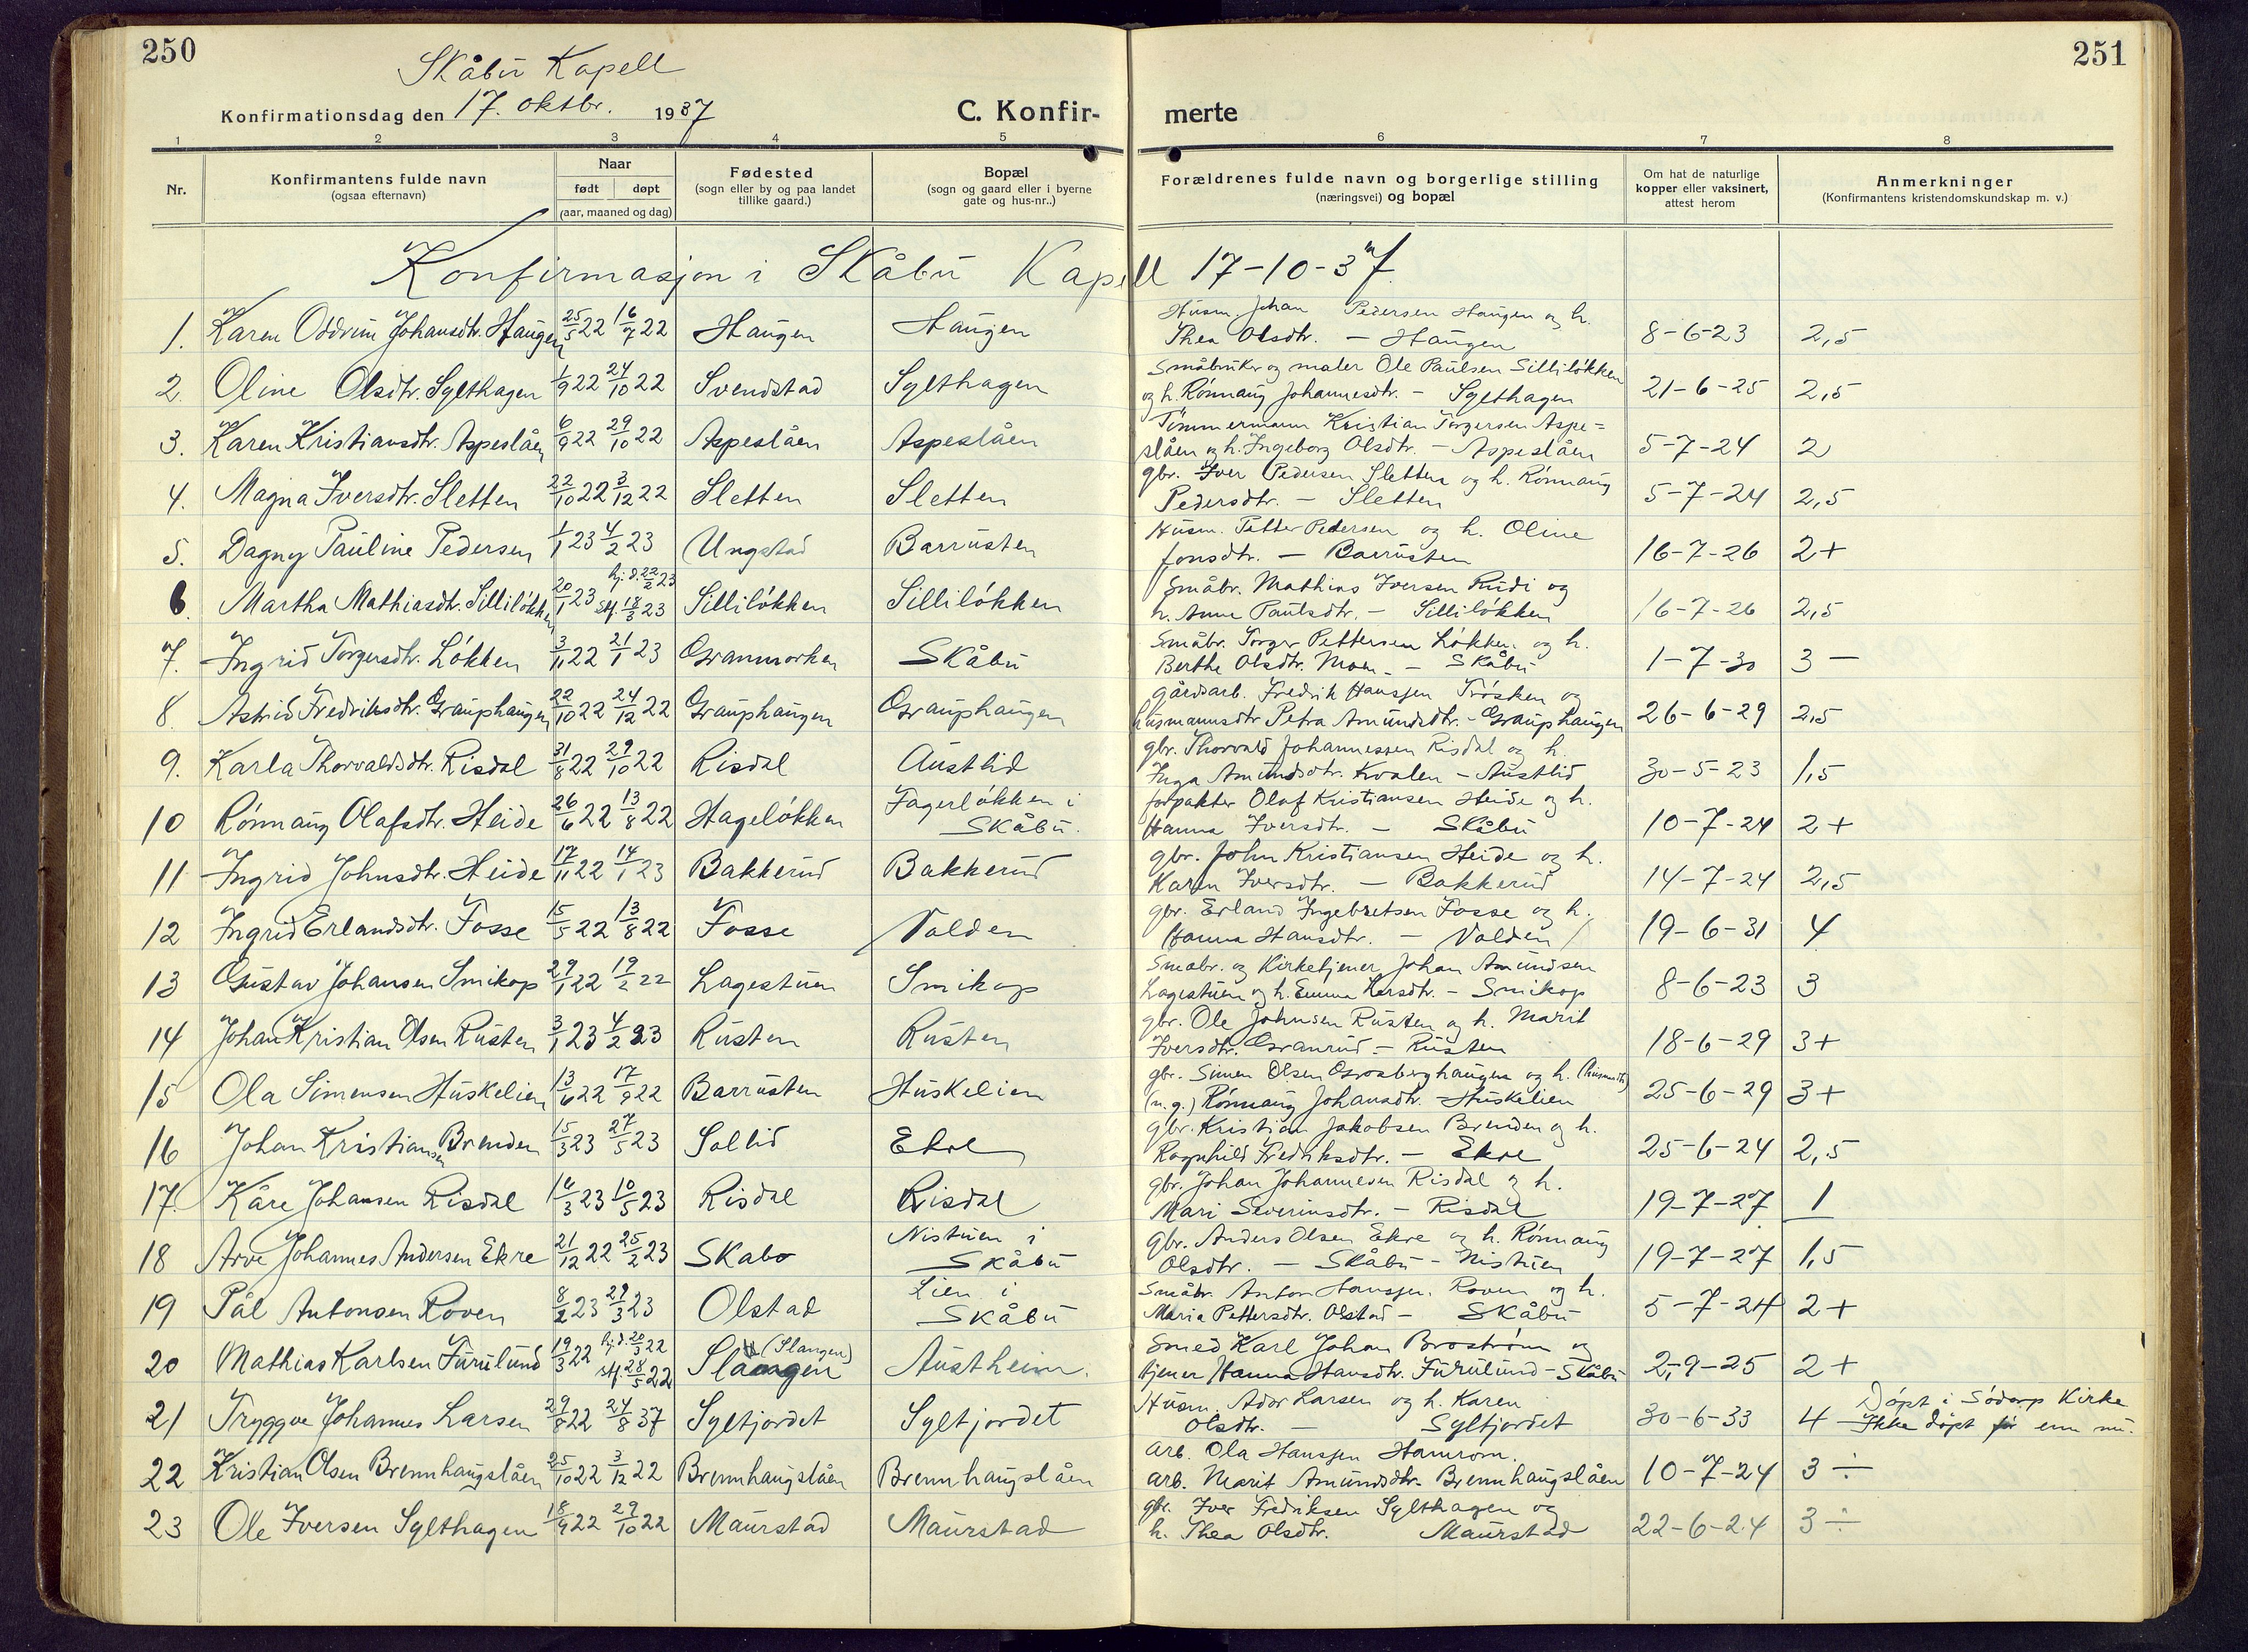 250
Skåbu Kapell
Konfirmationsdag den 17. oktbr. 1937
C. Konfir-
merte
251
1 2 3 4 5 6 7 8
Nr.
Konfirmantens fulde navn
(ogsaa efternavn)
Naar
født døpt
(aar, maaned og dag)
Fødested
(sogn eller by og paa landet
tillike gaard.)
Bopæl
(sogn og gaard eller i byerne
gate og hus-nr..)
Forældrenes fulde navn og borgerlige stilling
(næringsvei) og bopæl
Om hat de naturlige
kopper eller vaksinert,
attest herom
Anmerkninger
(Konfirmantens kristendomskundskap m. v.)
Konfirmasjon i Skåbu Kapell 17-10-37
1. Karen Oddrun Johansdtr. Haugen 25/5 22 16/7 22 Haugen Haugen Husm. Johan Pedersen Haugen og h.
Thea Olsdtr. — Haugen 8-6-23 2,5
2. Oline Olsdtr. Sylthagen 1/9 22 24/10 22 Svendstad Sylthagen Småbruker og maler Ole Paulsen Silliløkken
og h. Rønnaug Johannesdtr. - Sylthagen 21-6-25 2,5
3. Karen Kristiansdtr. Aspeslåen 6/9 22 29/10 22 Aspeslåen Aspeslåen Tømmermann Kristian Torgersen Aspe=
slåen og h. Ingeborg Olsdtr. - Aspeslåen 5-7-24 2
4. Magna Iversdtr. Sletten 22/10 22 3/12 22 Sletten Sletten gbr. Iver Pedersen Sletten og h. Rønnaug
Pedersdtr. - Sletten 5-7-24 2,5
5. Dagny Pauline Pedersen 1/1 23 4/2 23 Ungstad Barrusten Husm. Petter Pedersen og h. Oline
Jonsdtr. — Barrusten 16-7-26 2+
6. Martha Mathiasdtr. Silliløkken 20/1 23 hj.d. 22/2 23 stf. 18/3 23 Silliløkken Silliløkken Småbr. Mathias Iversen Rudi og
h. Anne Paulsdtr. - Silliløkken 16-7-26 2,5
7. Ingrid Torgersdtr. Løkken 3/11 22 21/1 23 Granmorken Skåbu Småbr. Torger Pettersen Løkken og h.
Berthe Olsdtr. Moen - Skåbu 1-7-30 3 —
8. Astrid Fredriksdtr. Grauphaugen 22/10 22 24/12 22 Grauphaugen Grauphaugen Gårdsarb. Fredrik Hanssen Trøsken og
husmannsdtr Petra Amundsdtr. - Grauphaugen 26-6-29 2,5
9. Karla Thorvaldsdtr. Risdal 31/8 22 29/10 22 Risdal Austlid gbr. Thorvald Johannessen Risdal og h.
Inga Amundsdtr. Kvalen - Austlid 30-5-23 1,5
10 Rønnaug Olafsdtr. Heide 26/6 22 13/8 22 Hageløkken Fagerløkken i
Skåbu. forpakter Olaf Kristiansen Heide og h.
Hanna Iversdtr. - Skåbu 10-7-24 2+
11 Ingrid Johnsdtr. Heide 17/11 22 14/1 23 Bakkerud Bakkerud gbr. John Kristiansen Heide og h.
Karen Iversdtr. - Bakkerud 14-7-24 2,5
12 Ingrid Erlandsdtr. Fosse 15/5 22 13/8 22 Fosse Volden gbr. Erland Ingebretsen Fosse og h.
Hanna Hansdtr. - Volden 19-6-31 4
13 Gustav Johansen Smikop 29/1 22 19/2 22 Lagestuen Smikop Småbr. og Kirketjener Johan Amundsen
Lagestuen og h. Emma Hersdtr. - Smikop 8-6-23 3
14 Johan Kristian Olsen Rusten 3/1 23 4/2 23 Rusten Rusten gbr. Ole Johnsen Rusten og h. Marit
Iversdtr. Granrud - Rusten 18-6-29 3+
15 Ola Simensen Huskelien 13/6 22 17/9 22 Barrusten Huskelien gbr. Simen Olsen Grosberghaugen og h.
(n.g.) Rønnaug Johansdtr. Huskelien 25-6-29 3+
16 Johan Kristiansen Brenden 15/3 23 27/5 23 Sollid Ekre gbr. Kristian Jakobsen Brenden og h.
Ragnhild Fredriksdtr. - Ekre 25-6-24 2,5
17. Kåre Johansen Risdal 16/3 23 10/5 23 Risdal Risdal gbr. Johan Johannesen Risdal og h.
Mari Severinsdtr. - Risdal 19-7-27 1
18 Arve Johannes Andersen Ekre 21/12 22 25/2 23 Skabo Nistuen i
Skåbu gbr. Anders Olsen Ekre og h. Rønnaug
Olsdtr. - Skåbu - Nistuen 19-7-27 1,5
19 Pål Antonsen Roven 8/2 23 29/3 23 Olstad Lien i
Skåbu Småbr. Anton Hanssen Roven og h.
Maria Pettersdtr. Olstad - Skåbu 5-7-24 2+
20 Mathias Karlsen Furulund 19/3 22 hj.d. 20/3 22 stf. 28/5 22 Slaangen (Slangen) Austheim. Smed Karl Johan Brostrøm og
tjener Hanna Hansdtr. Furulund - Skåbu 2-9-25 2+
21 Tryggve Johannes Larsen 29/8 22 24/8 37 Syltjordet Syltjordet Husm. Ador Larsen og h. Karen
Olsdtr. - Syltjordet 30-6-33 4 Døpt i Sødorp Kirke
Ikke døpt før enn nu.
22 Kristian Olsen Brennhaugslåen 25/10 22 3/12 22 Brennhaugslåen Brennhaugslåen arb. Ola Hanssen Hamrom.
arb. Marit Amundsdtr. Brennhaugslåen 10-7-24 3 ÷
23 Ole Iversen Sylthagen 18/9 22 29/10 22 Maurstad Maurstad gbr. Iver Fredriksen Sylthagen og
h. Thea Olsdtr. Maurstad 22-6-24 3 ÷